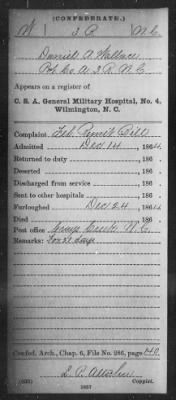 (CONFEDERATE.)
W 3 N.C.
Daniel A Wallace
Pvt Co A 3 R. N.C.
Appears on a register of
C. S. A. General Military Hospital, No. 4,
Wilmington, N. C.
Complaint Feb. Remit. Bill
Admitted Dec 14, 1864
Returned to duty, 186
Deserted, 186
Discharged from service, 186
Sent to other hospitals, 186
Furloughed Dec 24, 1864
Died, 186
Post office Creek N.C.
Remarks: For days
Confed. Arch., Chap. 6, File No. 286, page 140
(635) 1887 Copyist.